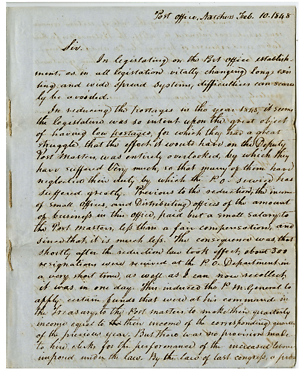 Post Office, Natchez Feb. 10. 1848
Sir.
In legislating on the Post Office establish-
ment, as in all legislation vitally changing long exis-
ting, and wide spread systems, difficulties can scarce-
ly be avoided.
In reducing the postages in the year 1845, it seems
the Legislature was so intent upon the great object
of having low postages, for which they had a great
struggle, that the effect it would have on the Deputy
Post Masters, was entirely overlooked, by which they
have suffered very much, so that many of them have
neglected their duty, by which the P.O. service has
suffered greatly. Previous to the reduction, the incom
of small offices, and Distributing offices of the amount
of business in this office, paid but a small salary to
the Post Masters, less than a fair compensation, and
since that it is much less. The consequence was that
shortly after the reduction took effect, about
resignations were received at the P.O. Department in
a very short time, as well as I can now recollect,
it was in one day. This induced the P.M. General to
apply certain funds that were at his command in
the Treasury, to the Post Masters to make their quarterly
income equal to the income of the corresponding quarter
of the previous year. But there was no provision made
to hire clerks for the performance of the increased labour
imposed under the law. By the law of last congress, a